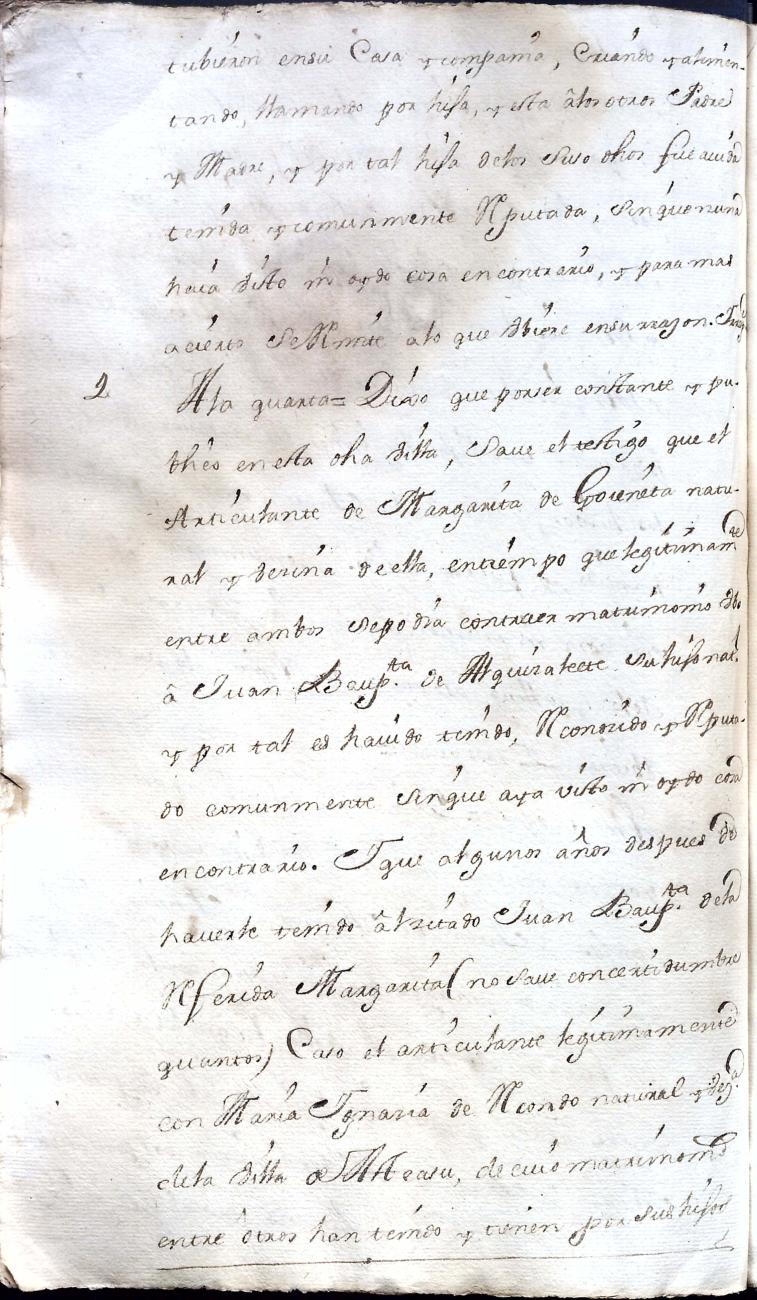 tubieron ensu Casa y compania, Criando y alimen-
tando, llamando por hija, y esta â los otros Padre
y Madre, y por tal hija delos suso dhos fue auida
tenida y comunmente Rputada, sin que nunca
haia visto ni oydo cosa encontrario, y para mas
acierto se Rmite alo que ubiere ensu rrazon.
2 Ala quarta = Dixo que por ser constante y pu-
blico enesta dha villa, save el testigo que el
Articulante de Margarita de Goieneta natu-
ral y vezina de ella, entiempo que legitimamte
entre ambos sepodia contraer matrimonio ubo
â Juan Baupta. de Alquizalete su hijo natl.
y por tal es hauido tenido, Rconozido y Rputa-
do comunmente sin que aya visto ni oydo cosa
encontrario. Y que algunos años despues de
hauerle tenido âl zitado Juan Baupta. dela
Rferida Margarita (no save concertidumbre
quantos) Caso el articulante legitimamente
con Maria Ygnazia de Rcondo natural y veza.
dela villa de Aleasu, de cuio matrimonio
entre ôtros han tenido y tienen por sus hijos